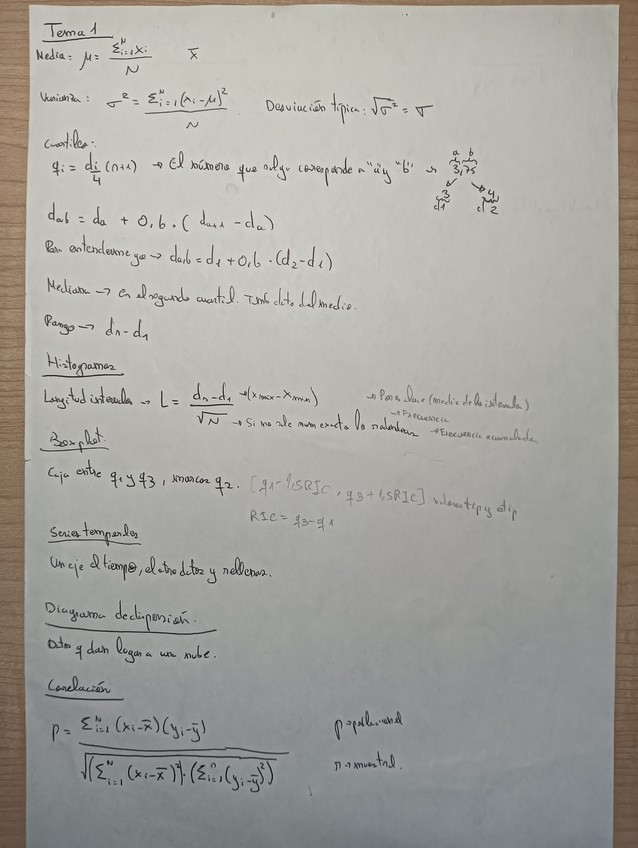 Tema 1
Media: μ = Σᴺᵢ₌₁ xᵢ / N    x̄
Varianza: σ² = Σᴺᵢ₌₁ (xᵢ-μ)² / N    Desviación típica: √σ² = σ
Cuartiles:
qᵢ = dᵢ/4 (n+1) → El número que salga corresponde a "a" y "b" → a b 3,75
3 4
d1 d2
da,b = da + 0,b · (da+1 - da)
Para entenderme yo → da,b = d1 + 0,b · (d2 - d1)
Mediana → En el segundo cuartil. dato del medio.
Rango → dn - d1
Histogramas
Longitud intervalos → L = dn - d1 / √N → (xmax - xmin)
→ Si no sale num exacto lo redondeas
→ clase (media de los intervalos)
→ Frecuencia
→ Frecuencia acumulada
Boxplot.
Caja entre q1 y q3, marcar q2. [q1-1,5RIC, q3+1,5RIC] valores tip y atip
RIC = q3-q1
Series temporales
Un eje el tiempo, el otro datos y rellenas.
Diagrama de dispersión.
Datos q dan lugar a una nube.
Correlación
ρ = Σᴺᵢ₌₁ (xᵢ-x̄)(yᵢ-ȳ) / √(Σᴺᵢ₌₁ (xᵢ-x̄)²)·(Σⁿᵢ₌₁ (yᵢ-ȳ)²)
ρ → poblacional
r → muestral.